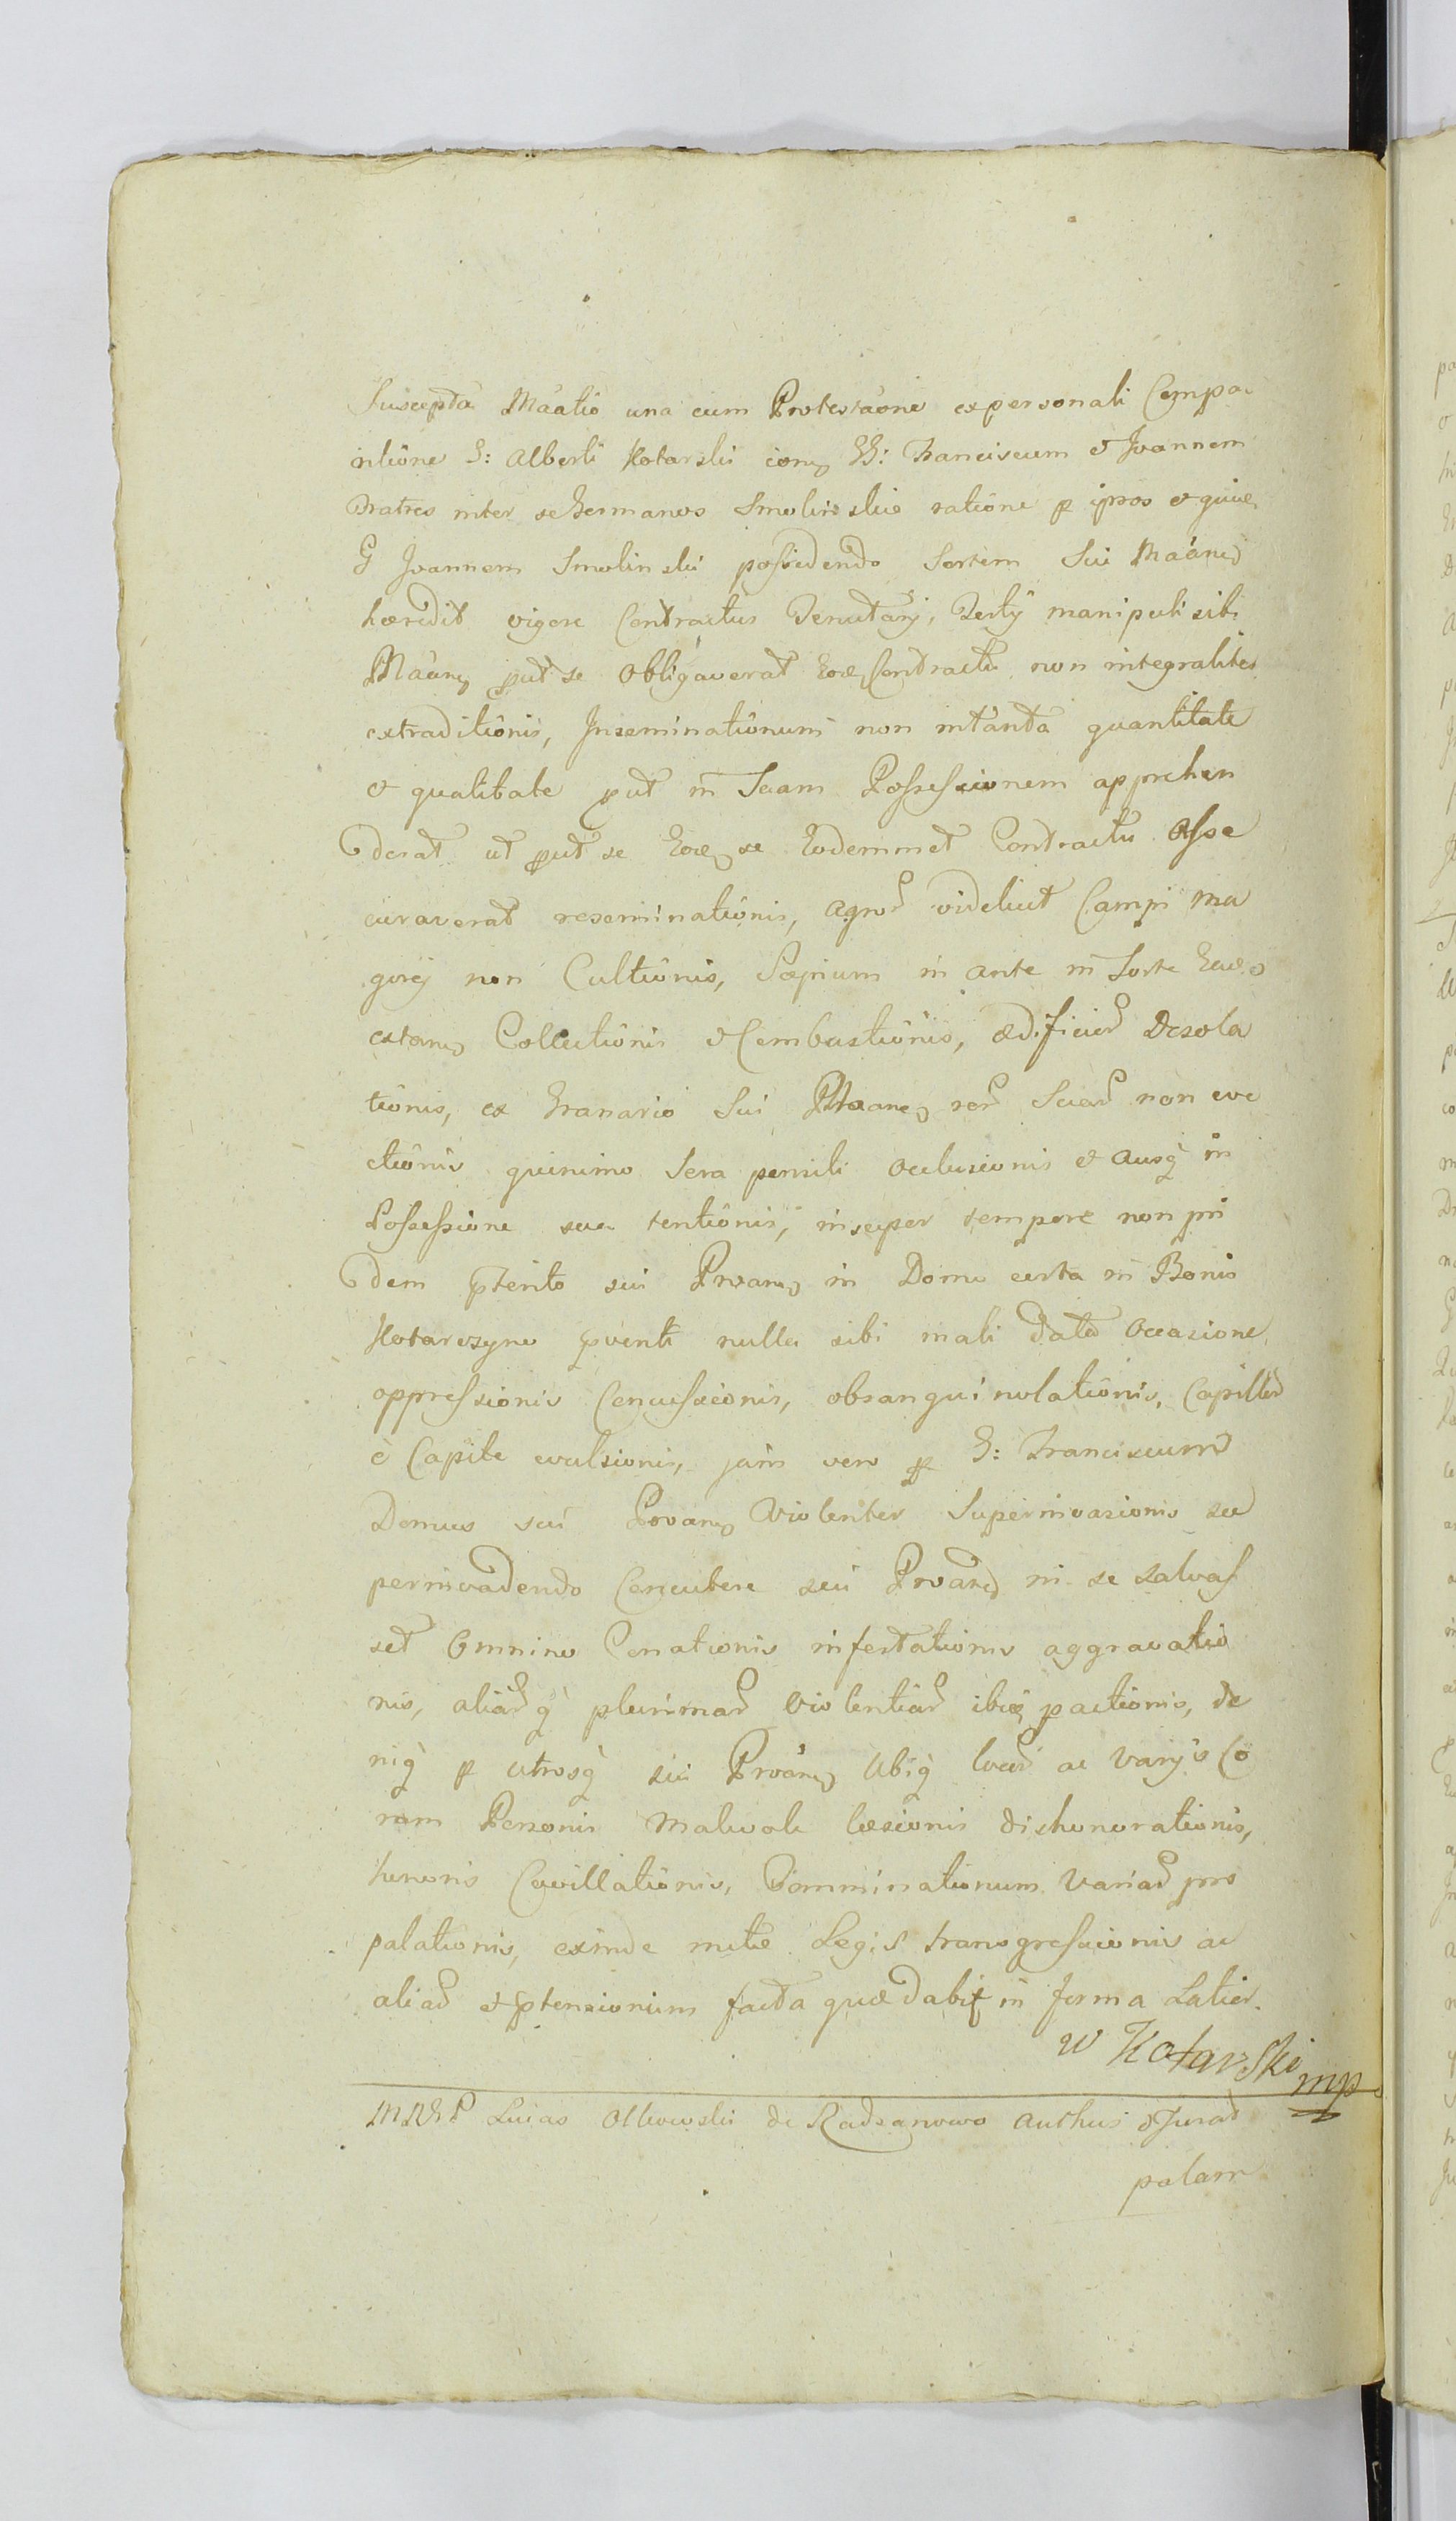 Suscepta Maatio una cum Protestaone ex personali Compa
ritione G: Alberti Kotarski conq GG: Franciscum et Joannem
Fratres inter se Germanos Smolinskie ratione p ipsos et quidem
G Joannem Smolinski possidendo Sortem Sui Maaneq
hæredit vigore Contractus Tenutarij, Tertij manipuli sibi
Maanq put se obligaverat Eoq Contractu non integraliter
extraditionis, Inseminationum non in tanta quantitate
et qualitate put in Suam Possessionem apprehen
derat ut put se Eoq se Eodemmet Contractu asse
curaverat reseminationis, agror videlicet Campi ma
gorij non Cultionis, Sæpium in ante in Sorte
extanq Collectionis et Combustionis, ædificior Desola
tionis, ex Granario Sui rer Suar non eve
ctionis quinimo Sera pensili occlusionis et ausq in
Possessione sua tentionis, insuper tempore non pri
dem ptento sui Prvanq in Domo certa in Bonis
Kotarczyno pventi nulla sibi mali data occasione
oppressionis Concussionis, obsanguinolationis, Capillor
è Capite evulsionis, jam vero p G: Franciscum
Domus sui Prvanq Violenter Superinvasionis su
perinvadendo Concutere sui Prvanq ni se salvas
set Omnino Conationis infestationis aggravatio
nis, aliarq plurimar Violentiar ibiq pactionis, de
niq p utrosq sui Prvanq Ubiq locor ac Varijs Co
ram Personis Malevole læsionis dishonorationis,
honoris Cavillationis, Comminationum Variar pro
palationis, exinde Legis transgressionis ac
aliar et ptensionum facta quæ dabit in forma Latior.
W Kotarski mp
MRGP Lucas Olkowski de Radzanowo Authus et Jurat
palam